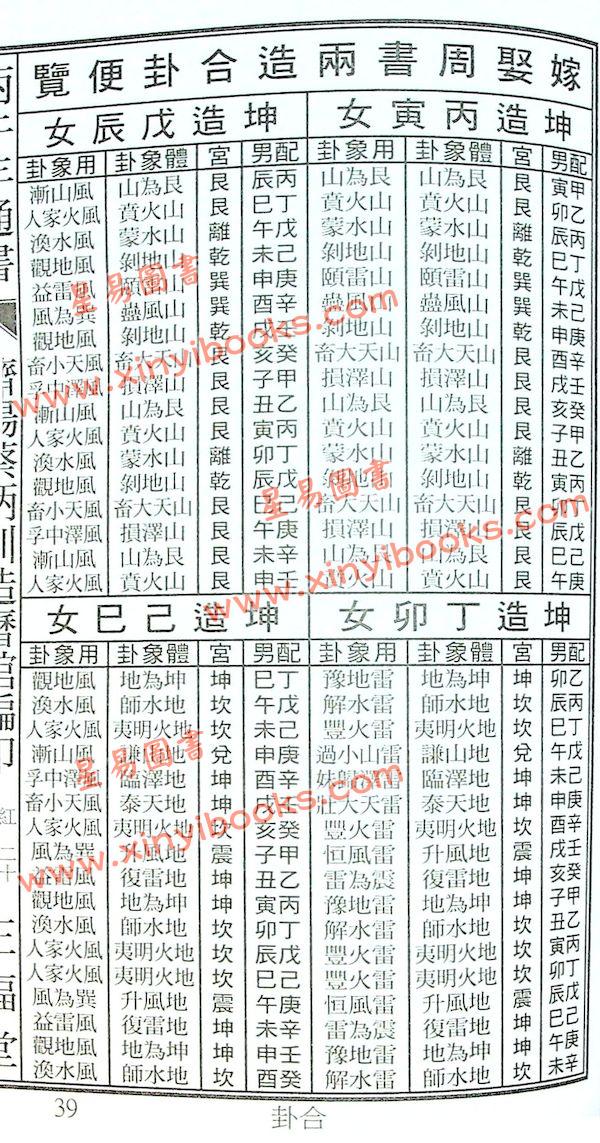 嫁娶周書兩造合卦便覽
坤造丙寅女
配男 宮 體象卦 用象卦
甲寅 艮 艮為山 艮為山
乙卯 艮 山火賁 山火賁
丙辰 離 山水蒙 山水蒙
丁巳 乾 山地剝 山地剝
戊午 巽 山雷頤 山雷頤
己未 巽 山風蠱 山風蠱
庚申 乾 山地剝 山地剝
辛酉 艮 山天大畜 山天大畜
壬戌 艮 山澤損 山澤損
癸亥 艮 艮為山 艮為山
甲子 艮 山火賁 山火賁
乙丑 離 山水蒙 山水蒙
丙寅 乾 山地剝 山地剝
丁卯 艮 山天大畜 山天大畜
戊辰 艮 山澤損 山澤損
己巳 艮 艮為山 艮為山
庚午 艮 山火賁 山火賁
坤造戊辰女
配男 宮 體象卦 用象卦
丙辰 艮 艮為山 風山漸
丁巳 艮 山火賁 風火家人
戊午 離 山水蒙 風水渙
己未 乾 山地剝 風地觀
庚申 巽 山雷頤 風雷益
辛酉 巽 山風蠱 巽為風
壬戌 乾 山地剝 風地觀
癸亥 艮 山天大畜 風天小畜
甲子 艮 山澤損 風澤中孚
乙丑 艮 艮為山 風山漸
丙寅 艮 山火賁 風火家人
丁卯 離 山水蒙 風水渙
戊辰 乾 山地剝 風地觀
己巳 艮 山天大畜 風天小畜
庚午 艮 山澤損 風澤中孚
辛未 艮 艮為山 風山漸
壬申 艮 山火賁 風火家人
坤造丁卯女
配男 宮 體象卦 用象卦
乙卯 坤 坤為地 雷地豫
丙辰 坎 地水師 雷水解
丁巳 坎 地火明夷 雷火豐
戊午 兌 地山謙 雷山小過
己未 坤 地澤臨 雷澤歸妹
庚申 坤 地天泰 雷天大壯
辛酉 坎 地火明夷 雷火豐
壬戌 震 地風升 雷風恒
癸亥 坤 地雷復 震為雷
甲子 坤 坤為地 雷地豫
乙丑 坎 地水師 雷水解
丙寅 坎 地火明夷 雷火豐
丁卯 坎 地火明夷 雷火豐
戊辰 震 地風升 雷風恒
己巳 坤 地雷復 震為雷
庚午 坤 坤為地 雷地豫
辛未 坎 地水師 雷水解
坤造己巳女
配男 宮 體象卦 用象卦
丁巳 坤 坤為地 風地觀
戊午 坎 地水師 風水渙
己未 坎 地火明夷 風火家人
庚申 兌 地山謙 風山漸
辛酉 坤 地澤臨 風澤中孚
壬戌 坤 地天泰 風天小畜
癸亥 坎 地火明夷 風火家人
甲子 震 地風升 巽為風
乙丑 坤 地雷復 風雷益
丙寅 坤 坤為地 風地觀
丁卯 坎 地水師 風水渙
戊辰 坎 地火明夷 風火家人
己巳 坎 地火明夷 風火家人
庚午 震 地風升 巽為風
辛未 坤 地雷復 風雷益
壬申 坤 坤為地 風地觀
癸酉 坎 地水師 風水渙
通書
合卦
39
星易圖書
www.xinyibooks.com
星易圖書
www.xinyibooks.com
星易圖書
www.xinyibooks.com